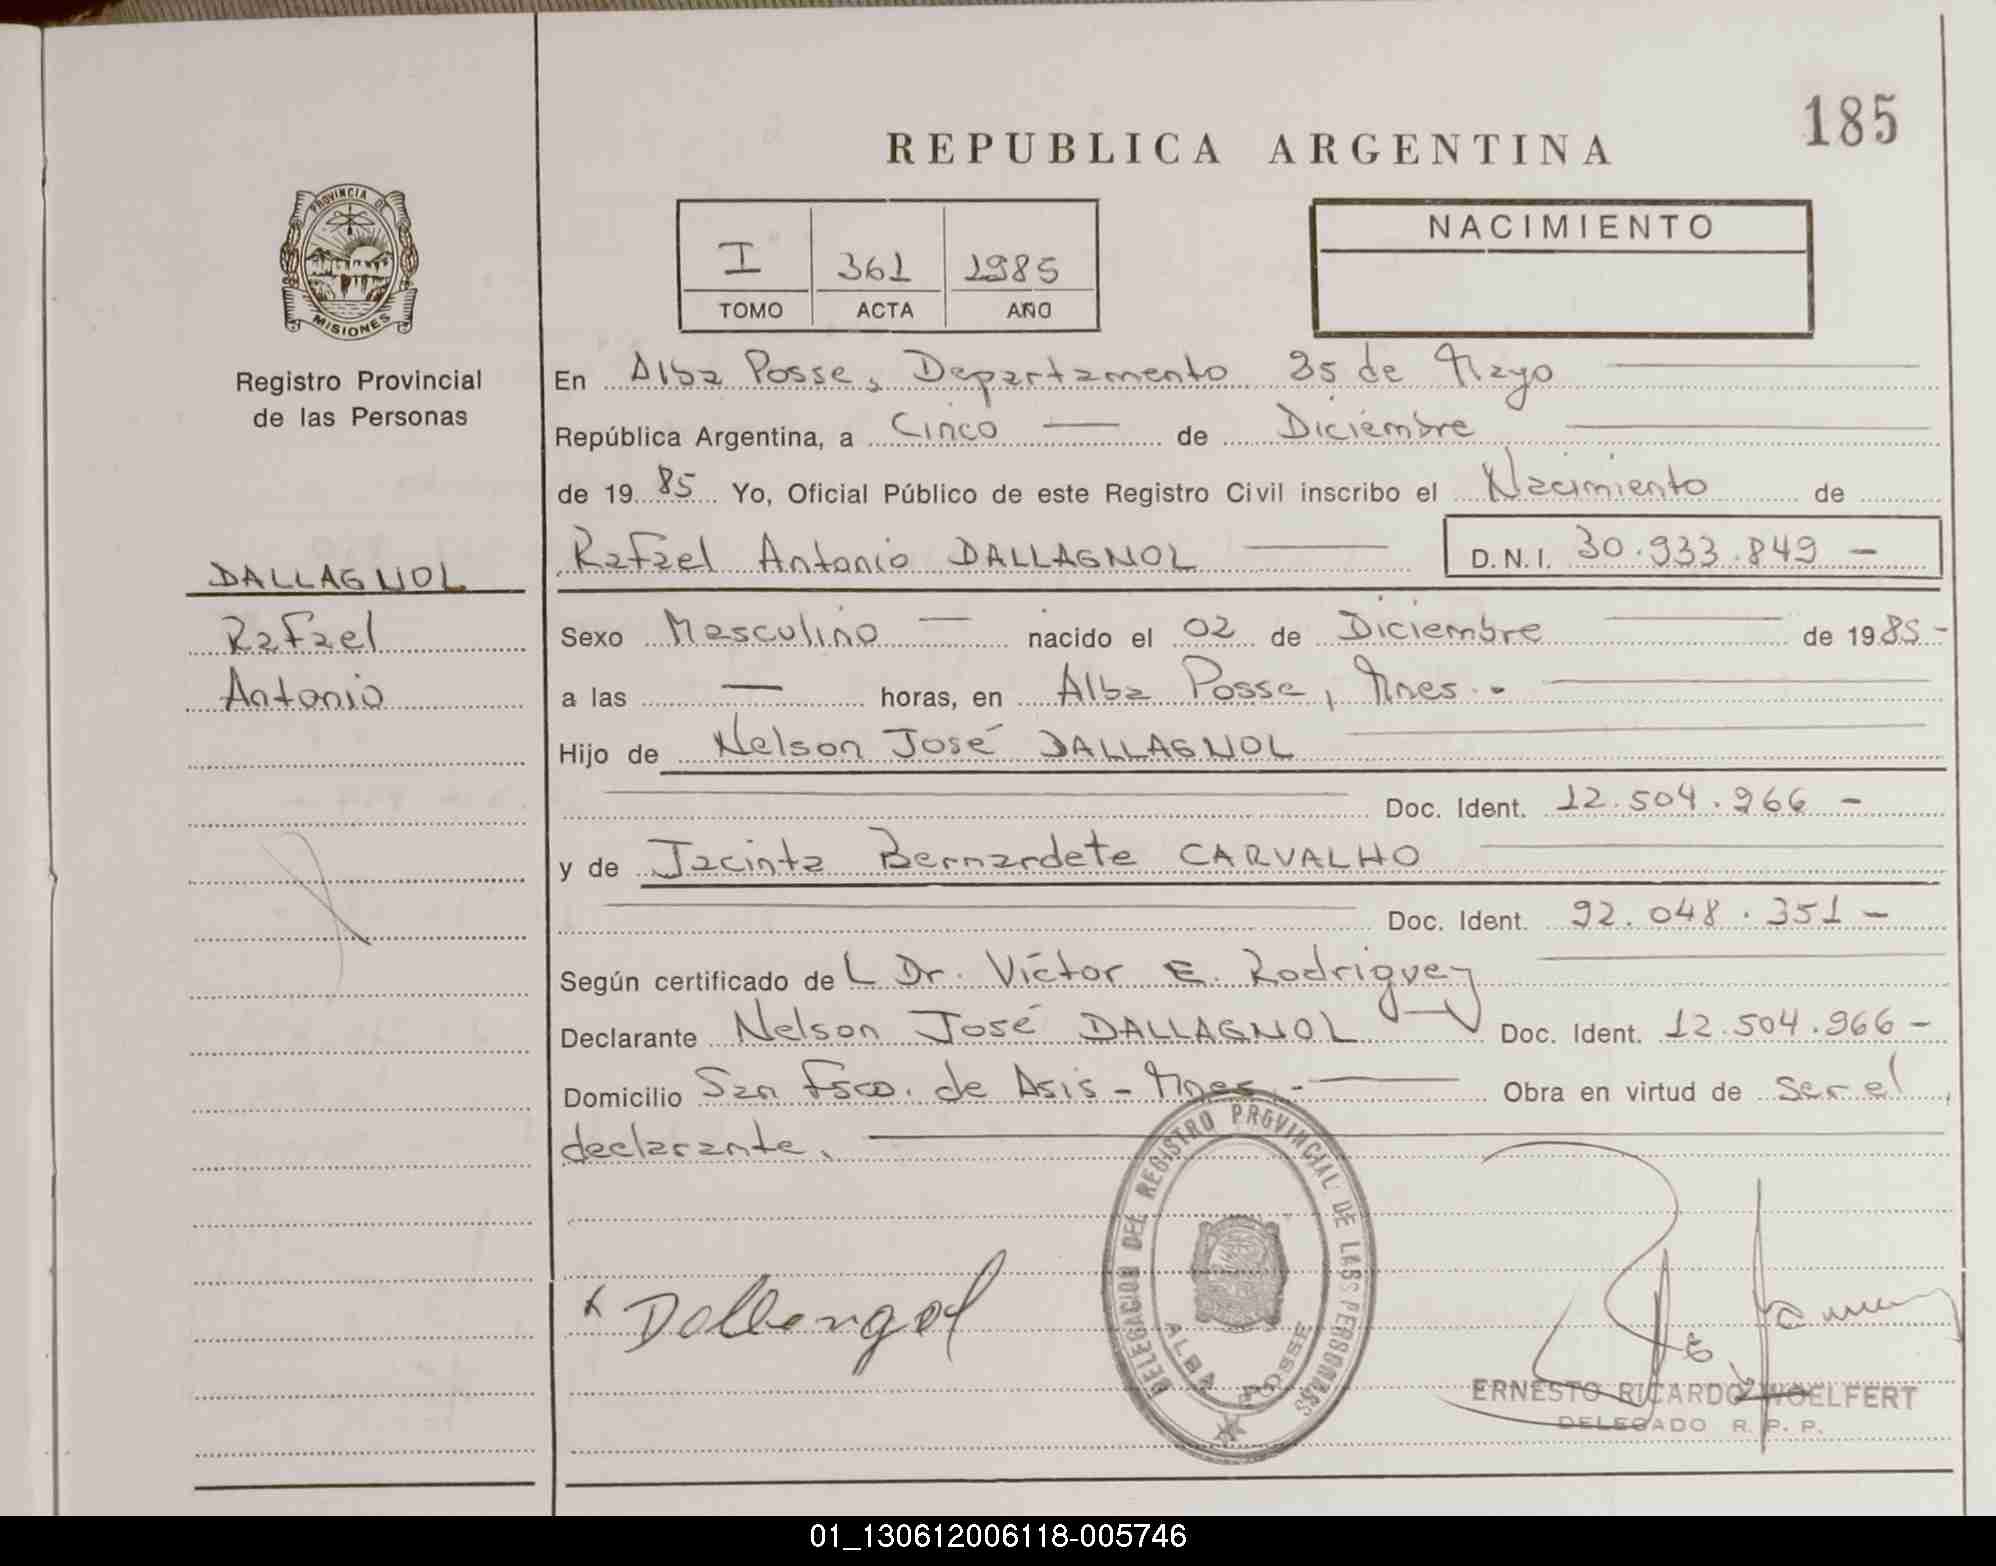 185
REPUBLICA ARGENTINA
PROVINCIA DE
MISIONES
I 361 1985
TOMO ACTA AÑO
NACIMIENTO
Registro Provincial
de las Personas
En Alba Posse, Departamento 25 de Mayo
República Argentina, a Cinco — de Diciembre
de 1985 Yo, Oficial Público de este Registro Civil inscribo el Nacimiento de
Rafael Antonio DALLAGNOL — D.N.I. 30.933.849 —
DALLAGNOL
Rafael
Antonio
Sexo Masculino — nacido el 02 de Diciembre de 1985 -
a las — horas, en Alba Posse, Mnes. -
Hijo de Nelson José DALLAGNOL
Doc. Ident. 12.504.966 —
y de Jacinta Bernardete CARVALHO
Doc. Ident. 92.048.351 —
Según certificado de L Dr. Víctor E. Rodriguez
Declarante Nelson José DALLAGNOL Doc. Ident. 12.504.966 —
Domicilio San Fsco. de Asis - Mnes. - Obra en virtud de ser el
declarante.
DELEGACION DEL REGISTRO PROVINCIAL DE LAS PERSONAS
ALBA POSSE
x Dallangol
ERNESTO RICARDO WOELFERT
DELEGADO R. P. P.
01_130612006118-005746